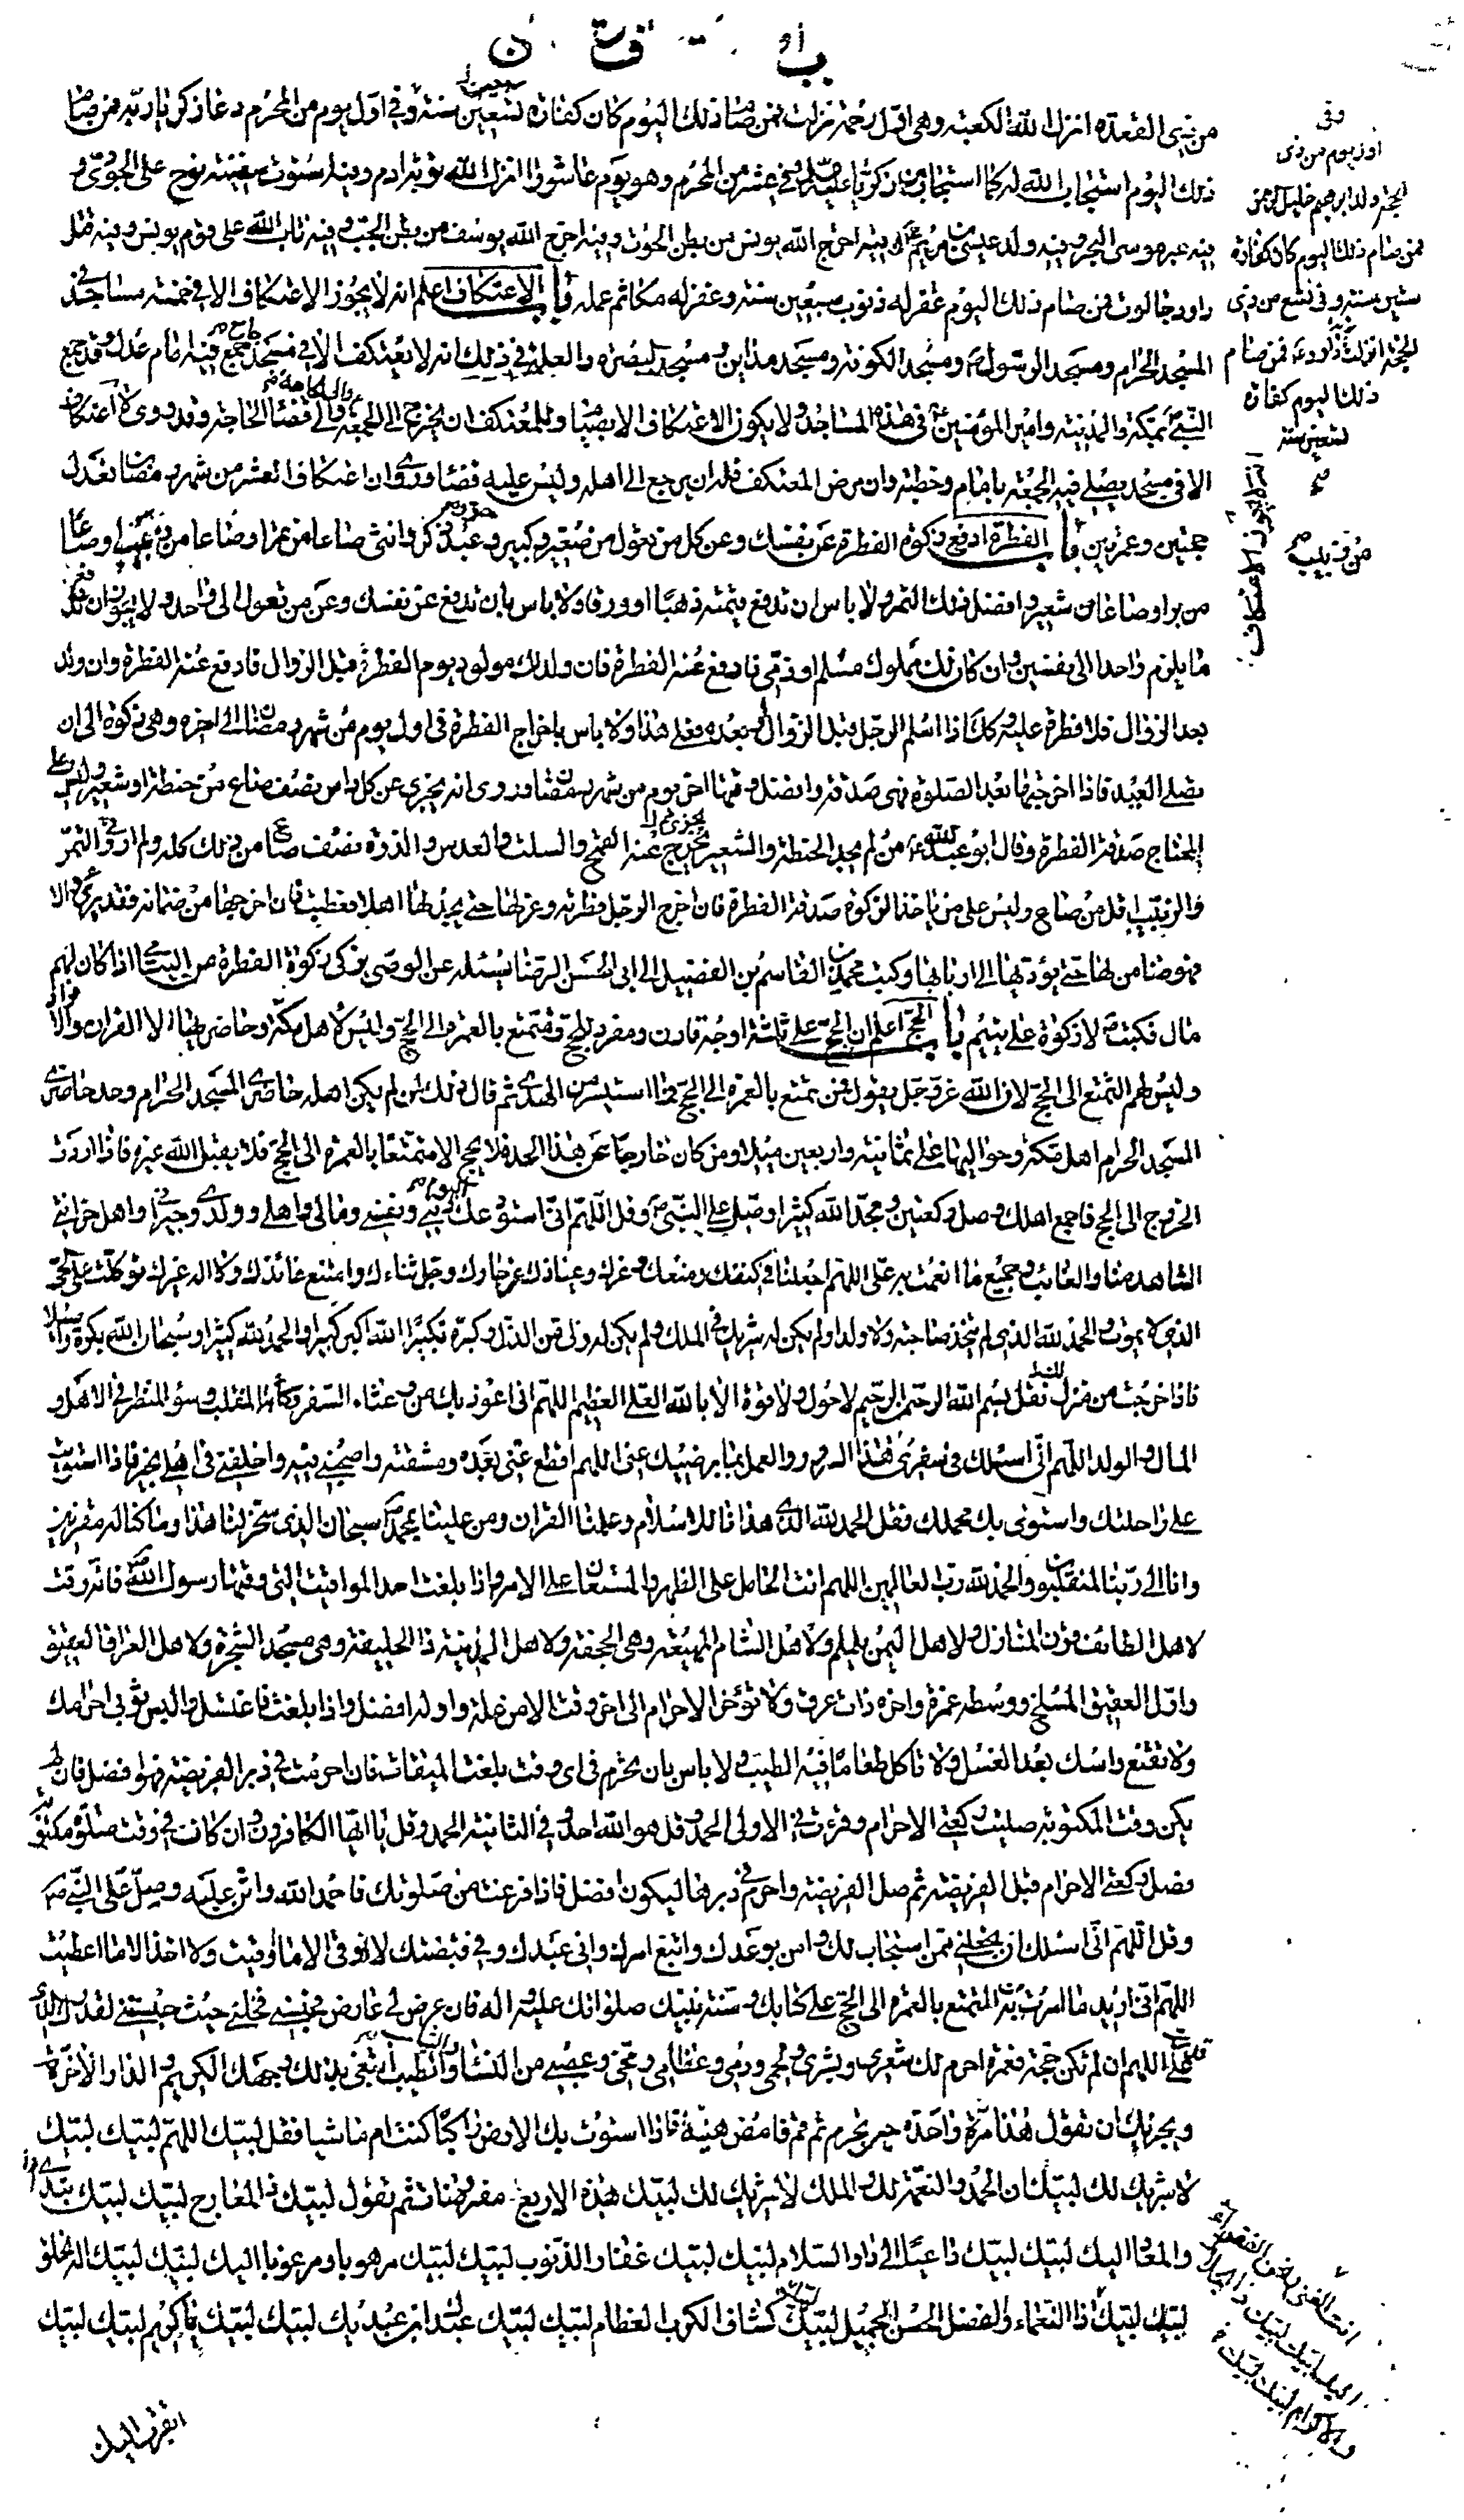 من ذي القعدة انزل الله الكعبة وهي اول رحمة نزلت فمن صام ذلك اليوم كان كفارة سبعين سنة وفي اول يوم من المحرم دعا زكريا ربه فمن صام
ذلك اليوم استجاب الله له كما استجاب من زكريا عليه السلم وفي عشر من المحرم وهو يوم عاشورا انزل الله توبة ادم وفيه استوت سفينة نوح على الجودي و
فيه عبر موسى البحر وفيه ولد عيسى بن مريم ع وفيه اخرج الله يونس من بطن الحوت وفيه اخرج الله يوسف من بطن الجب وفيه تاب الله على قوم يونس وفيه قتل
داود جالوت فمن صام ذلك اليوم غفر له ذنوب سبعين سنة وغفر له مكاتم عمله باب الاعتكاف اعلم انه لا يجوز الاعتكاف الا في خمسة مساجد في
المسجد الحرام ومسجد الرسول ص ومسجد الكوفة ومسجد مداين ومسجد البصرة والعلة في ذلك انه لا يعتكف الا في مسجد جامع جمع فيه امام عدل وقد جمع
النبي ص بمكة والمدينة وامير المؤمنين ع في هذه المساجد ولا يكون الاعتكاف الا بصيام وللمعتكف ان يخرج الى الجمعة والى قضاء الحاجة وقد روي لا اعتكاف
الا في مسجد يصلى فيه الجمعة بامام وخطبة وان مرض المعتكف فله ان يرجع الى اهله وليس عليه قضاء وروي ان اعتكاف العشر من شهر رمضان تعدل
حجتين وعمرتين باب الفطرة ادفع زكوة الفطرة عن نفسك وعن كل من تعول من صغير وكبير حر وعبد ذكر وانثى صاعا من تمر او صاعا من زبيب او صاعا
من بر او صاعا من شعير وافضل ذلك التمر ولا باس ان تدفع قيمته ذهبا او ورقا ولا باس بان تدفع عن نفسك وعن من تعول الى واحد ولا يجوز ان تدفع
ما يلزم واحدا الى نفسين وان كان لك مملوك مسلم او ذمي فادفع عنه الفطرة فان ولد لك مولود يوم الفطر قبل الزوال فادفع عنه الفطرة وان ولد
بعد الزوال فلا فطرة عليه وكذا اذا اسلم الرجل قبل الزوال او بعده فعلى هذا ولا باس باخراج الفطرة في اول يوم من شهر رمضان الى اخره وهي زكوة الى ان
تصلي العيد فاذا اخرجتها بعد الصلوة فهي صدقة وافضل وقتها اخر يوم من شهر رمضان وروي انه يجزي عن كل راس نصف صاع من حنطة او شعير وليس على
المحتاج صدقة الفطرة وقال ابو عبد الله ع من لم يجد الحنطة والشعير يجزي عنه القمح والسلت والعدس والذرة نصف صاع من ذلك كله ولم ارو في التمر
والزبيب اقل من صاع وليس على من ياخذ الزكوة صدقة الفطرة فان اخرج الرجل فطرته وعزلها حتى يجد لها اهلا فعطبت فان اخرجها من ضمانه فقد برئ والا
فهو ضامن لها حتى يؤديها الى اربابها وكتب محمد بن القاسم بن الفضيل الى ابي الحسن الرضا يسئله عن الوصي يزكي زكوة الفطرة من اليتامى اذا كان لهم
مال فكتب ع لا زكوة على يتيم باب الحج اعلم ان الحج على ثلثة اوجه قارن ومفرد للحج ومتمتع بالعمرة الى الحج وليس لاهل مكة وحاضريها الا القران والافراد
وليس لهم التمتع الى الحج لان الله عز وجل يقول فمن تمتع بالعمرة الى الحج فما استيسر من الهدي ثم قال ذلك لمن لم يكن اهله حاضري المسجد الحرام وحد حاضري
المسجد الحرام اهل مكة وحواليها على ثمانية واربعين ميلا ومن كان خارجا عن هذا الحد فلا يحج الا متمتعا بالعمرة الى الحج فلا يقبل الله غيره فاذا اردت
الخروج الى الحج فاجمع اهلك وصل ركعتين ومجد الله كثيرا وصل على النبي ص وقل اللهم اني استودعك اليوم ديني ونفسي ومالي واهلي وولدي وجيراني واهل حزانتي
الشاهد منا والغائب وجميع ما انعمت به علي اللهم اجعلنا في كنفك ومنعك وعزك وعياذك عز جارك وجل ثناءك وامتنع عائذك ولا اله غيرك توكلت على الحي
الذي لا يموت والحمد لله الذي لم يتخذ صاحبة ولا ولدا ولم يكن له شريك في الملك ولم يكن له ولي من الذل وكبره تكبيرا الله اكبر كبيرا والحمد لله كثيرا وسبحان الله بكرة واصيلا
فاذا خرجت من منزلك فقل بسم الله الرحمن الرحيم لا حول ولا قوة الا بالله العلي العظيم اللهم اني اعوذ بك من وعثاء السفر وكآبة المنقلب وسوء المنظر في الاهل و
المال والولد اللهم اني اسئلك في سفري هذا السرور والعمل بما يرضيك عني اللهم اقطع عني بعده ومشقته واصحبني فيه واخلفني في اهلي بخير فاذا استويت
على راحلتك واستوى بك محملك فقل الحمد لله الذي هدانا للاسلام وعلمنا القران ومن علينا بمحمد ص سبحان الذي سخر لنا هذا وما كنا له مقرنين
وانا الى ربنا لمنقلبون والحمد لله رب العالمين اللهم انت الحامل على الظهر والمستعان على الامر واذا بلغت احد المواقيت التي وقتها رسول الله ص فانه وقت
لاهل الطائف قرن المنازل ولاهل اليمن يلملم ولاهل الشام المهيعة وهي الجحفة ولاهل المدينة ذا الحليفة وهي مسجد الشجرة ولاهل العراق العقيق
واول العقيق المسلخ ووسطه غمرة واخره ذات عرق ولا تؤخر الاحرام الى اخر وقت الا من علة واوله افضل واذا بلغت فاغتسل والبس ثوبي احرامك
ولا تقنع راسك بعد الغسل ولا تاكل طعاما فيه الطيب ولا باس بان يحرم في اي وقت بلغت الميقات فان احرمت في دبر الفريضة فهو افضل فان لم
يكن وقت المكتوبة صليت ركعتي الاحرام وقرءت في الاولى الحمد وقل هو الله احد وفي الثانية الحمد وقل يا ايها الكافرون وان كانت في وقت صلوة مكتوبة
فصل ركعتي الاحرام قبل الفريضة ثم صل الفريضة واحرم في دبرها ليكون افضل فاذا فرغت من صلوتك فاحمد الله واثن عليه وصل على النبي ص
وقل اللهم اني اسئلك ان تجعلني ممن استجاب لك وامن بوعدك واتبع امرك واني عبدك وفي قبضتك لا اوقى الا ما اوقيت ولا اخذ الا ما اعطيت
اللهم اني اريد ما امرت به المتمتع بالعمرة الى الحج على كتابك وسنة نبيك صلواتك عليه واله فان عرض لي عارض يحبسني فحلني حيث حبستني لقدرك الذي
قدرت علي اللهم ان لم تكن حجة فعمرة احرم لك شعري وبشري ولحمي ودمي وعظامي ومخي وعصبي من النساء والثياب والطيب ابتغي بذلك وجهك الكريم والدار الاخرة
ويجزيك ان تقول هذا مرة واحدة حين تحرم ثم قم فامض هنيئة فاذا استوت بك الارض راكبا كنت ام ماشيا فقل لبيك اللهم لبيك لبيك
لا شريك لك لبيك ان الحمد والنعمة لك والملك لا شريك لك لبيك هذه الاربع مفروضات ثم تقول لبيك ذا المعارج لبيك لبيك تبدئ
والمعاد اليك لبيك لبيك داعيا الى دار السلام لبيك لبيك غفار الذنوب لبيك لبيك مرهوبا ومرغوبا اليك لبيك لبيك اله الخلق
لبيك لبيك ذا النعماء والفضل الحسن الجميل لبيك لبيك كشاف الكرب العظام لبيك لبيك عبدك وابن عبديك لبيك لبيك يا كريم لبيك لبيك
اتقرب اليك
وفي
اول يوم من ذي
الحجة ولد ابرهيم خليل الرحمن
فمن صام ذلك اليوم كان كفارة
ستين سنة وفي تسع من ذي
الحجة انزلت توبة داود ع فمن صام
ذلك اليوم كفارة
تسعين سنة
انت الغني ونحن الفقراء
اليك لبيك لبيك ذا الجلال
والاكرام لبيك لبيك